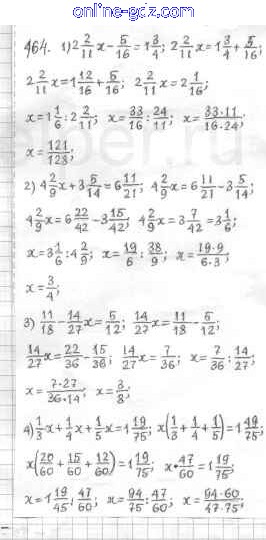 464. 1) 2 2/11 x - 5/16 = 1 3/4; 2 2/11 x = 1 3/4 + 5/16;
2 2/11 x = 1 12/16 + 5/16; 2 2/11 x = 2 1/16;
x = 1 1/6 : 2 2/11; x = 33/16 : 24/11; x = 33·11/16·24;
x = 121/128;
2) 4 2/9 x + 3 5/14 = 6 11/21; 4 2/9 x = 6 11/21 - 3 5/14;
4 2/9 x = 6 22/42 - 3 15/42; 4 2/9 x = 3 7/42 = 3 1/6;
x = 3 1/6 : 4 2/9; x = 19/6 : 38/9; x = 19·9/6·3;
x = 3/4;
3) 11/18 - 14/27 x = 5/12; 14/27 x = 11/18 - 5/12;
14/27 x = 22/36 - 15/36; 14/27 x = 7/36; x = 7/36 : 14/27;
x = 7·27/36·14; x = 3/8;
4) 1/3 x + 1/4 x + 1/5 x = 1 19/75; x(1/3 + 1/4 + 1/5) = 1 19/75;
x(20/60 + 15/60 + 12/60) = 1 19/75; x · 47/60 = 1 19/75;
x = 1 19/45 : 47/60; x = 94/75 : 47/60; x = 94·60/47·75;